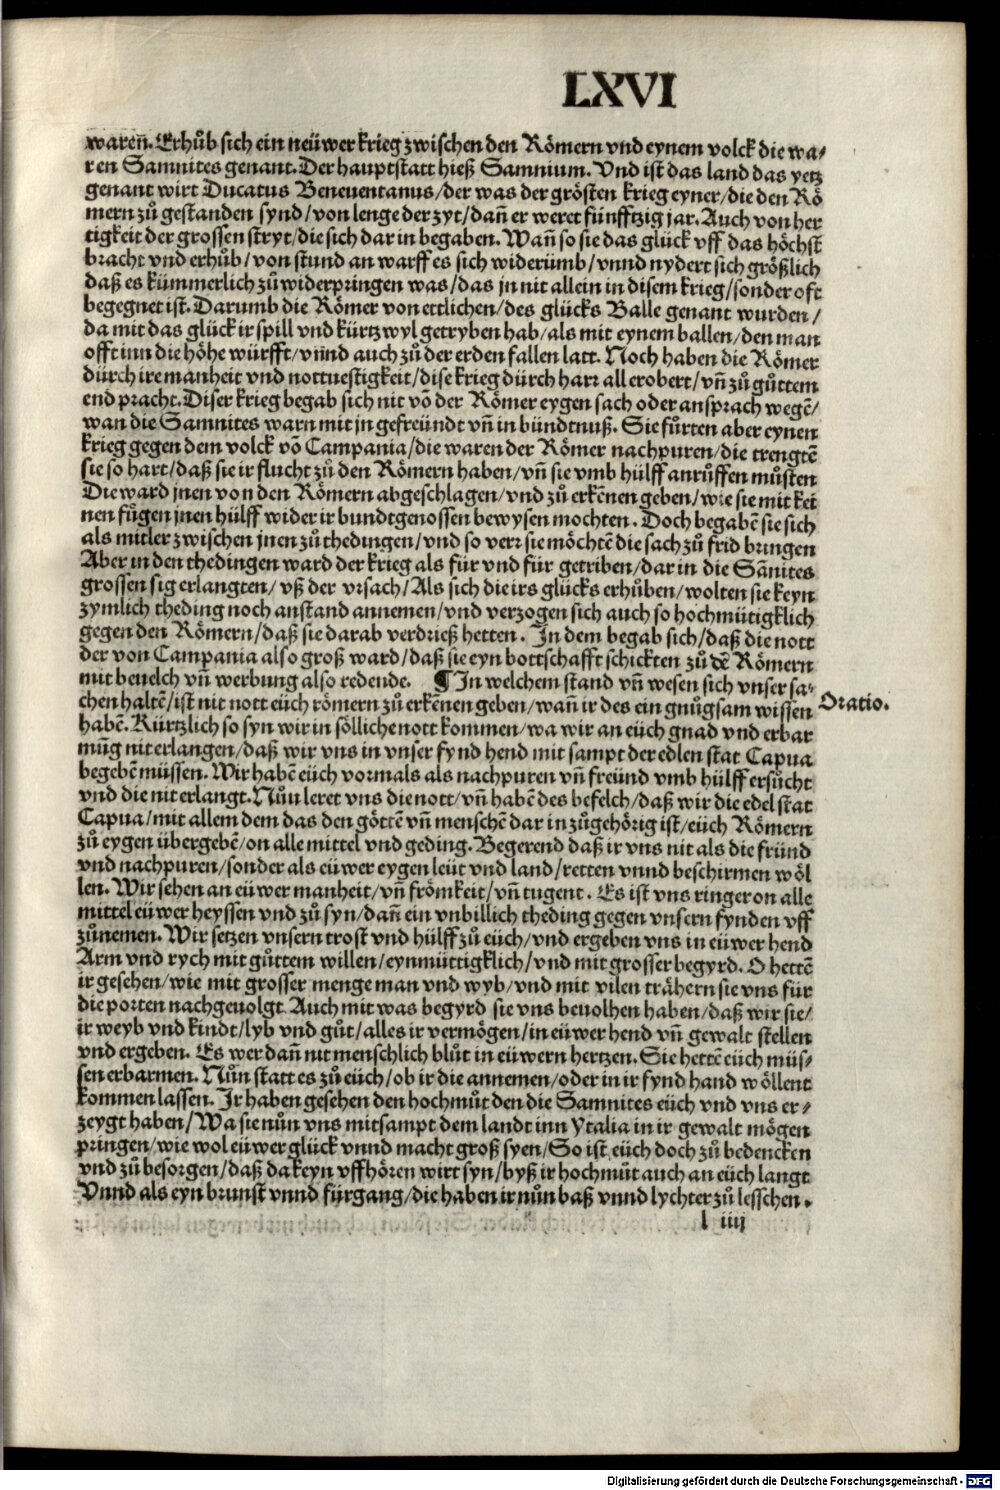 LXVI
waren̄. Erhůb sich ein neüwer krieg zwischen den Römern vnd eynem volck die wa⸗
ren Samnites genant. Der hauptstatt hieß Samnium. Vnd ist das land das yetz
genant wirt Ducatus Beneuentanus/der was der grösten krieg eyner/die den Rö
mern zů gestanden synd/von lenge der zyt/dañ er weret fünfftzig jar. Auch von her
tigkeit der grossen stryt/die sich dar in begaben. Wañ so sie das glück vff das höchst
bracht vnd erhůb/von stund an warff es sich widerümb/vnnd nydert sich größlich
daß es kümmerlich zů widerpringen was/das jn nit allein in disem krieg/sonder oft
begegnet ist. Darumb die Römer von ettlichen/des glücks Balle genant wurden/
da mit das glück ir spill vnd kürtzwyl getryben hab/als mit eynem ballen/den man
offt inn die höhe würfft/vnnd auch zů der erden fallen latt. Noch haben die Römer
dürch ire manheit vnd nottuestigkeit/dise krieg dürch harr all erobert/vñ zů gůttem
end pracht. Diser krieg begab sich nit võ der Römer eygen sach oder ansprach wegẽ/
wan die Samnites warn mit jn gefreündt vñ in bündtnuß. Sie fürten aber eynen
krieg gegen dem volck võ Campania/die waren der Römer nachpuren/die trengtẽ
sie so hart/daß sie ir flucht zů den Römern haben/vñ sie vmb hülff anrůffen můsten
Die ward jnen von den Römern abgeschlagen/vnd zů erkẽnen geben/wie sie mit kei
nen fůgen jnen hülff wider ir bundtgenossen bewysen mochten. Doch begabẽ sie sich
als mitler zwischen jnen zů thedingen/vnd so verr sie möchtẽ die sach zů frid bringen
Aber in den thedingen ward der krieg als für vnd für getriben/dar in die Sãnites
grossen sig erlangten/vß der vrsach/Als sich die irs glücks erhůben/wolten sie keyn
zymlich theding noch anstand annemen/vnd verzogen sich auch so hochmütigklich
gegen den Römern/daß sie darab verdrieß hetten. In dem begab sich/daß die nott
der von Campania also groß ward/daß sie eyn bottschafft schickten zů dẽ Römern
mit beuelch vñ werbung also redende. ¶ In welchem stand vñ wesen sich vnser sa⸗
chen haltẽ/ist nit nott eüch römern zů erkẽnen geben/wañ ir des ein gnůgsam wissen
Oratio.
habẽ. Kürtzlich so syn wir in sölliche nott kommen/wa wir an eüch gnad vnd erbar
mũg nit erlangen/daß wir vns in vnser fynd hend mit sampt der edlen stat Capua
begebẽ müssen. Wir habẽ eüch vormals als nachpuren vñ freünd vmb hülff ersůcht
vnd die nit erlangt. Nůu leret vns die nott/vñ habẽ des befelch/daß wir die edel stat
Capua/mit allem dem das den göttẽ vñ menschẽ dar in zůgehörig ist/eüch Römern
zů eygen übergebẽ/on alle mittel vnd geding. Begerend daß ir vns nit als die fründ
vnd nachpuren/sonder als eüwer eygen leüt vnd land/retten vnnd beschirmen wöl
len. Wir sehen an eüwer manheit/vñ frömkeit/vñ tugent. Es ist vns ringer on alle
mittel eüwer heyssen vnd zů syn/dañ ein vnbillich theding gegen vnsern fynden vff
zůnemen. Wir setzen vnsern trost vnd hülff zů eüch/vnd ergeben vns in eüwer hend
Arm vnd rych mit gůttem willen/eynmüttigklich/vnd mit grosser begyrd. O hettẽ
ir gesehen/wie mit grosser menge man vnd wyb/vnd mit vilen trähern sie vns für
die porten nachgeuolgt. Auch mit was begyrd sie vns beuolhen haben/daß wir sie/
ir weyb vnd kindt/lyb vnd gůt/alles ir vermögen/in eüwer hend vñ gewalt stellen
vnd ergeben. Es wer dañ nit menschlich blůt in eüwern hertzen. Sie hettẽ eüch müs⸗
sen erbarmen. Nůn statt es zů eüch/ob ir die annemen/oder in ir fynd hand wöllent
kommen lassen. Ir haben gesehen den hochmůt den die Samnites eüch vnd vns er⸗
zeygt haben/Wa sie nůn vns mitsampt dem landt inn Ytalia in ir gewalt mögen
pringen/wie wol eüwer glück vnnd macht groß syen/So ist eüch doch zů bedencken
vnd zů besorgen/daß da keyn vffhören wirt syn/byß ir hochmůt auch an eüch langt
Vnnd als eyn brunst vnnd fürgang/die haben ir nůn baß vnnd lychter zů lesschen.
l iiij
Digitalisierung gefördert durch die Deutsche Forschungsgemeinschaft - DFG